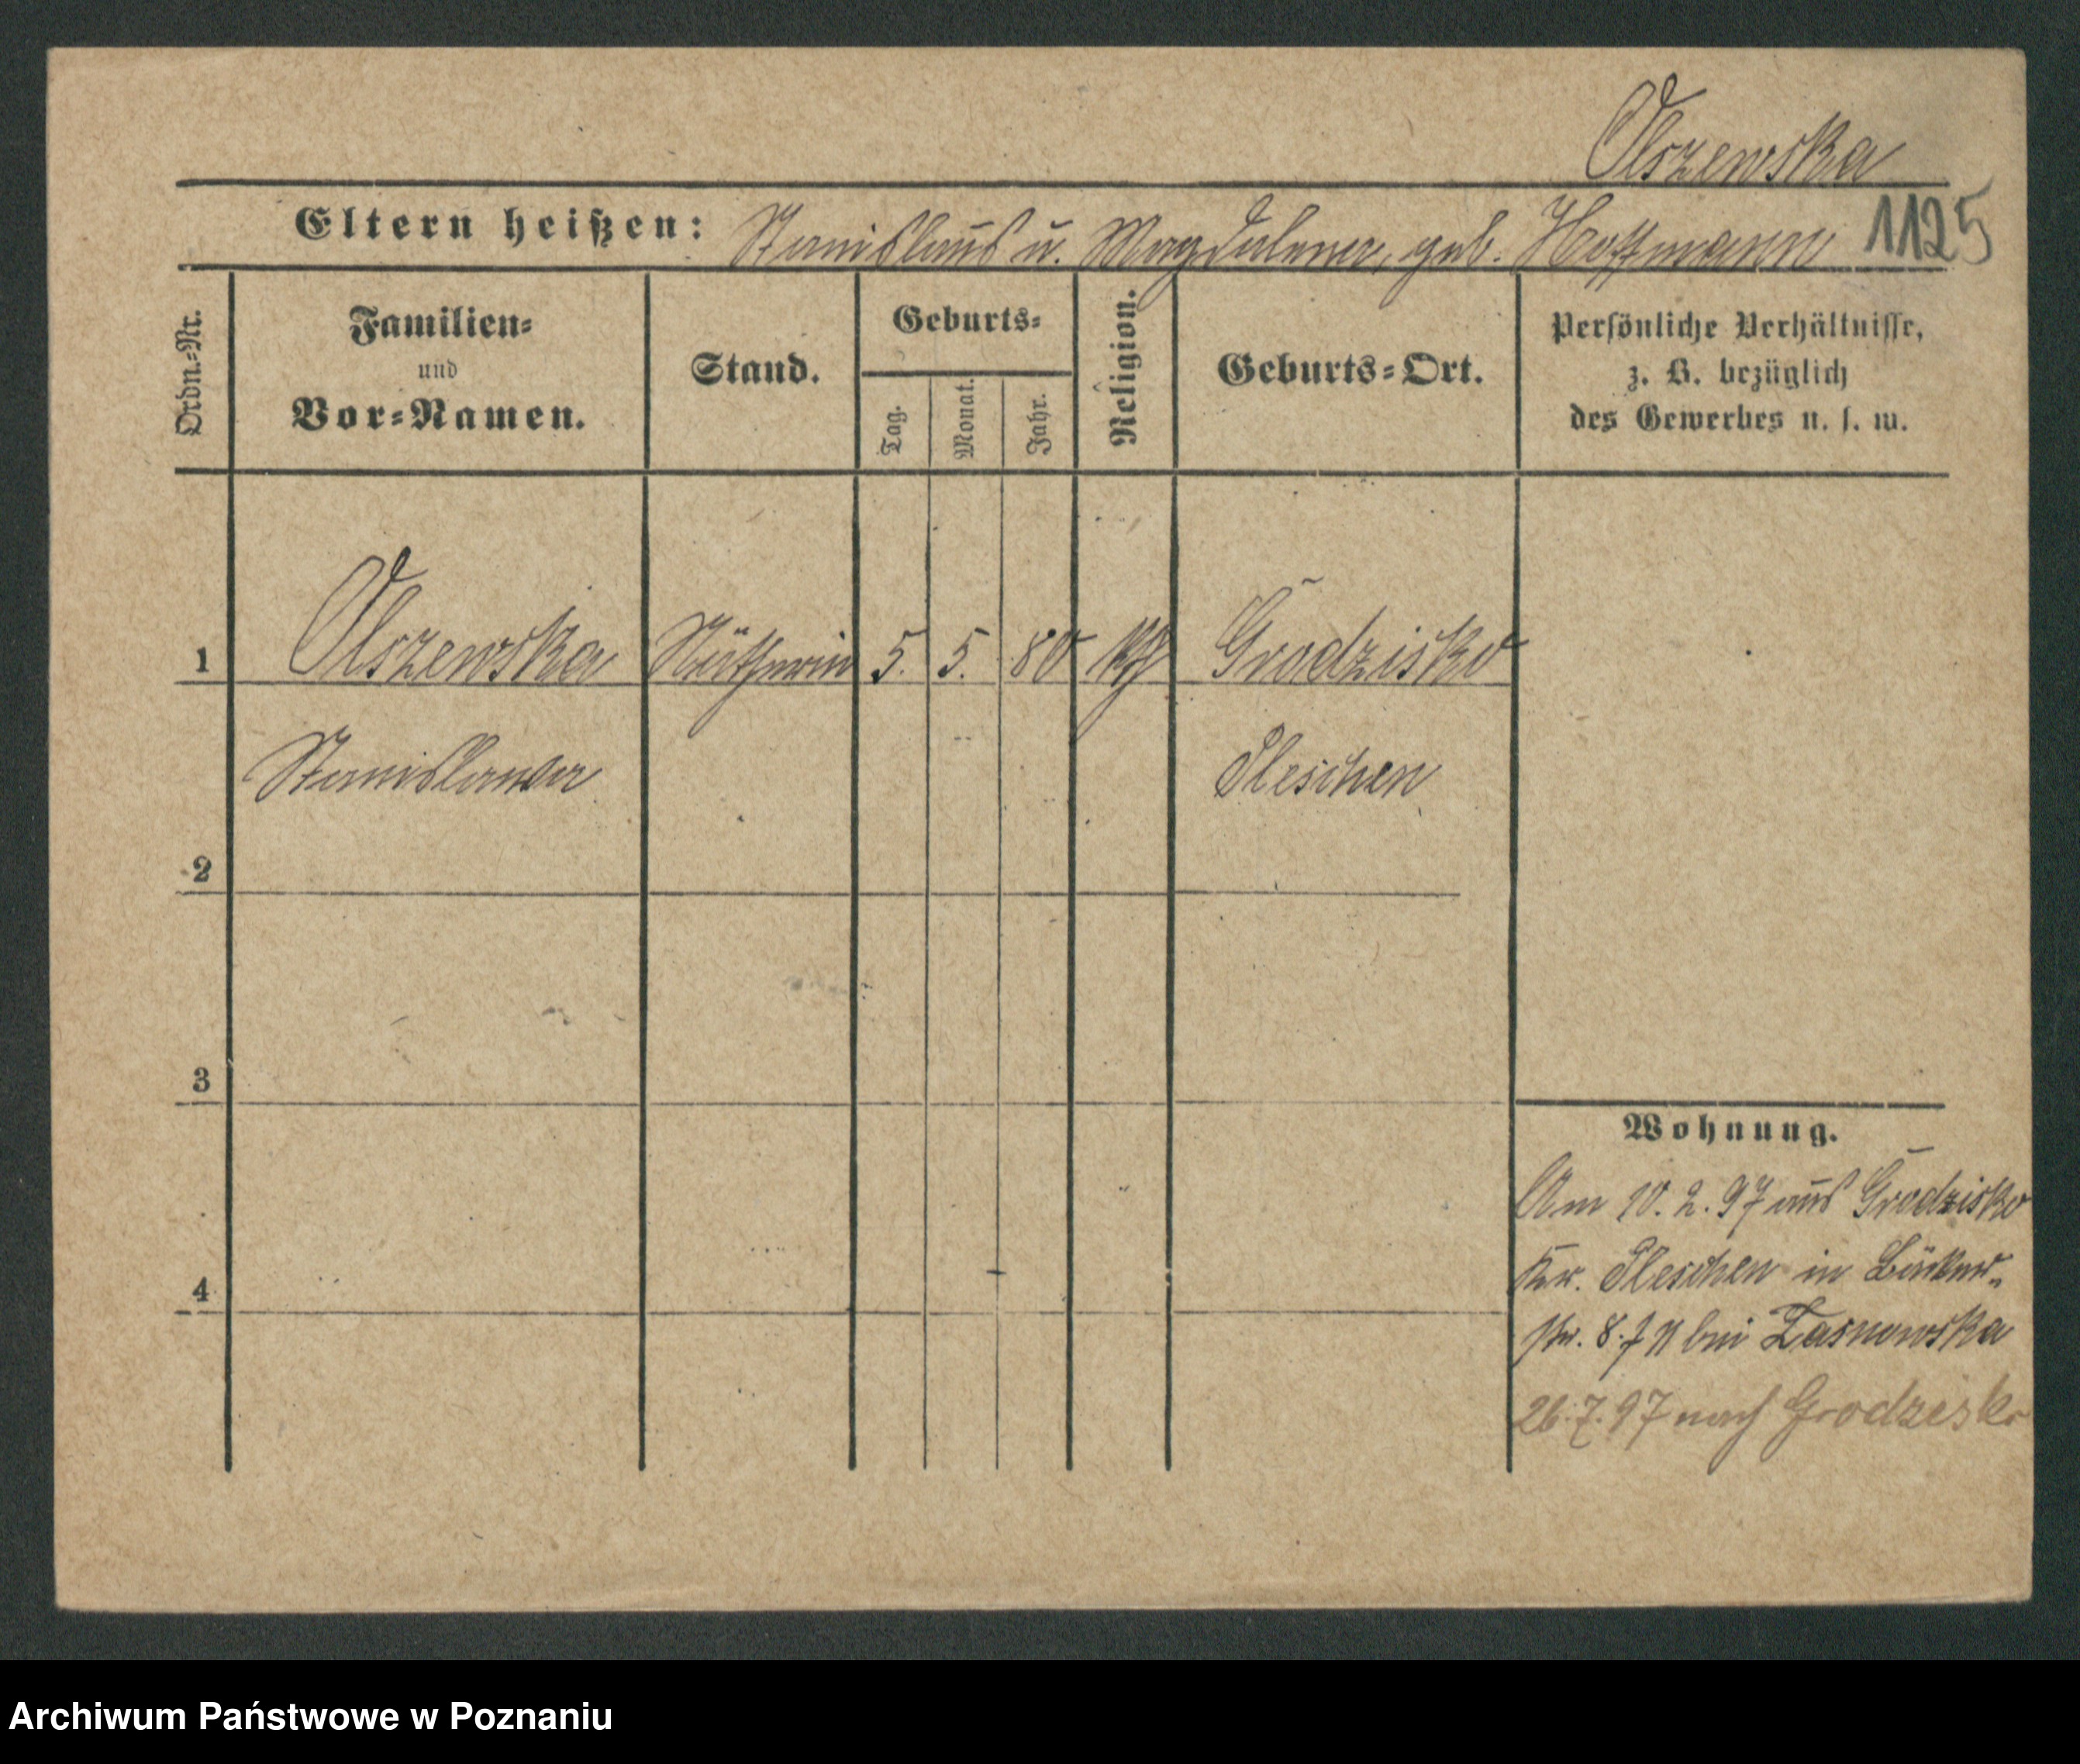 Olszewska
Eltern heißen: Stanislaus u. Magdalena, geb. Hoffmann 1125
Ordn.-Nr.
Familien-
und
Vor-Namen.
Stand.
Geburts-
Tag.
Monat.
Jahr.
Religion.
Geburts-Ort.
Persönliche Verhältnisse,
z. B. bezüglich
des Gewerbes u. s. w.
1 Olszewska Nätherin 5. 5. 80 kth Grodzisko
Stanislawa Pleschen
2
3
4
Wohnung.
Am 10. 2. 97 aus Grodzisko
Kr. Pleschen in Bäcker-
str. 8. bei
26.7.97 nach Grodzisko
Archiwum Państwowe w Poznaniu